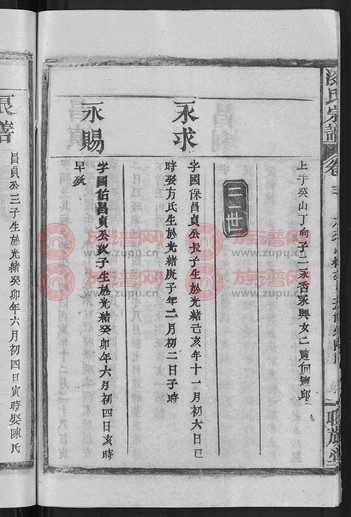 氏宗譜
卷
聯族堂
上于癸山丁向子二永香永興女二適何適邱
三世
永求
字國保昌貞公長子生於光緒己亥年十一月初六日巳
時娶方氏生於光緒庚子年二月初二日子時
永賜
字國佑昌貞公次子生於光緒癸卯年六月初四日亥時
早歿
良善
昌貞公三子生於光緒癸卯年六月初四日寅時娶陳氏
族譜网
www.zupu.cn